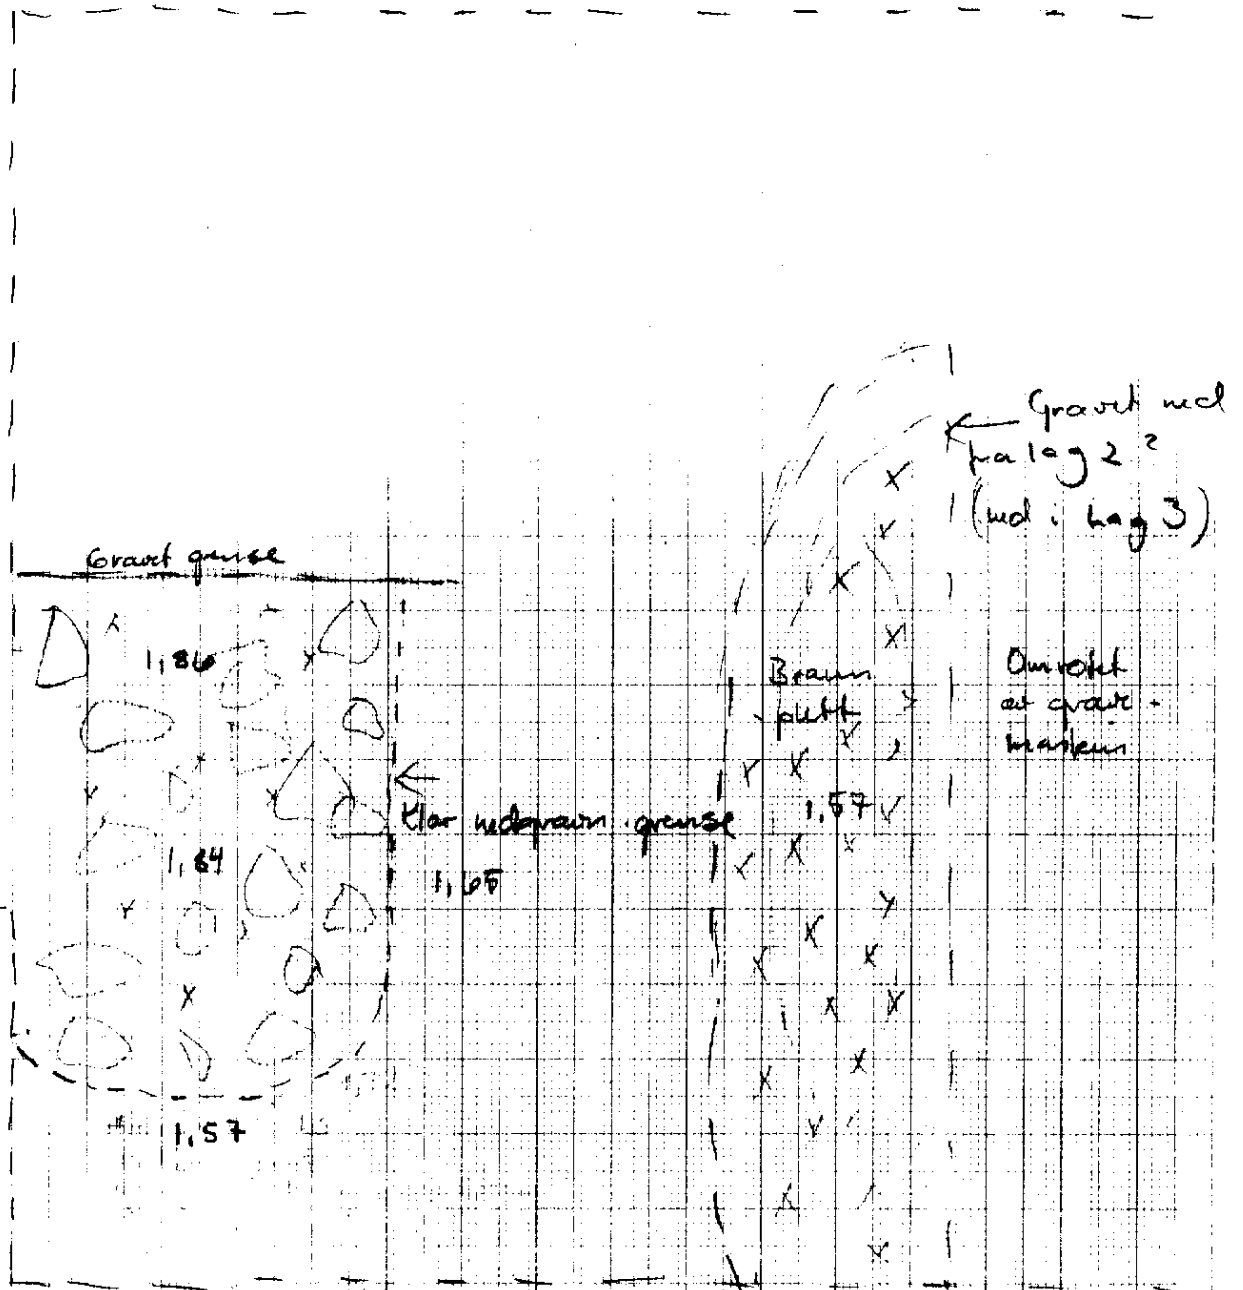 Gravet ned
på lag 2?
(ned i lag 3)
Gravet grense
1,86
Brann
plett
Omrotet
av grave-
maskin
1,57
Klar nedgravn. grense
1,84
1,65
1,57